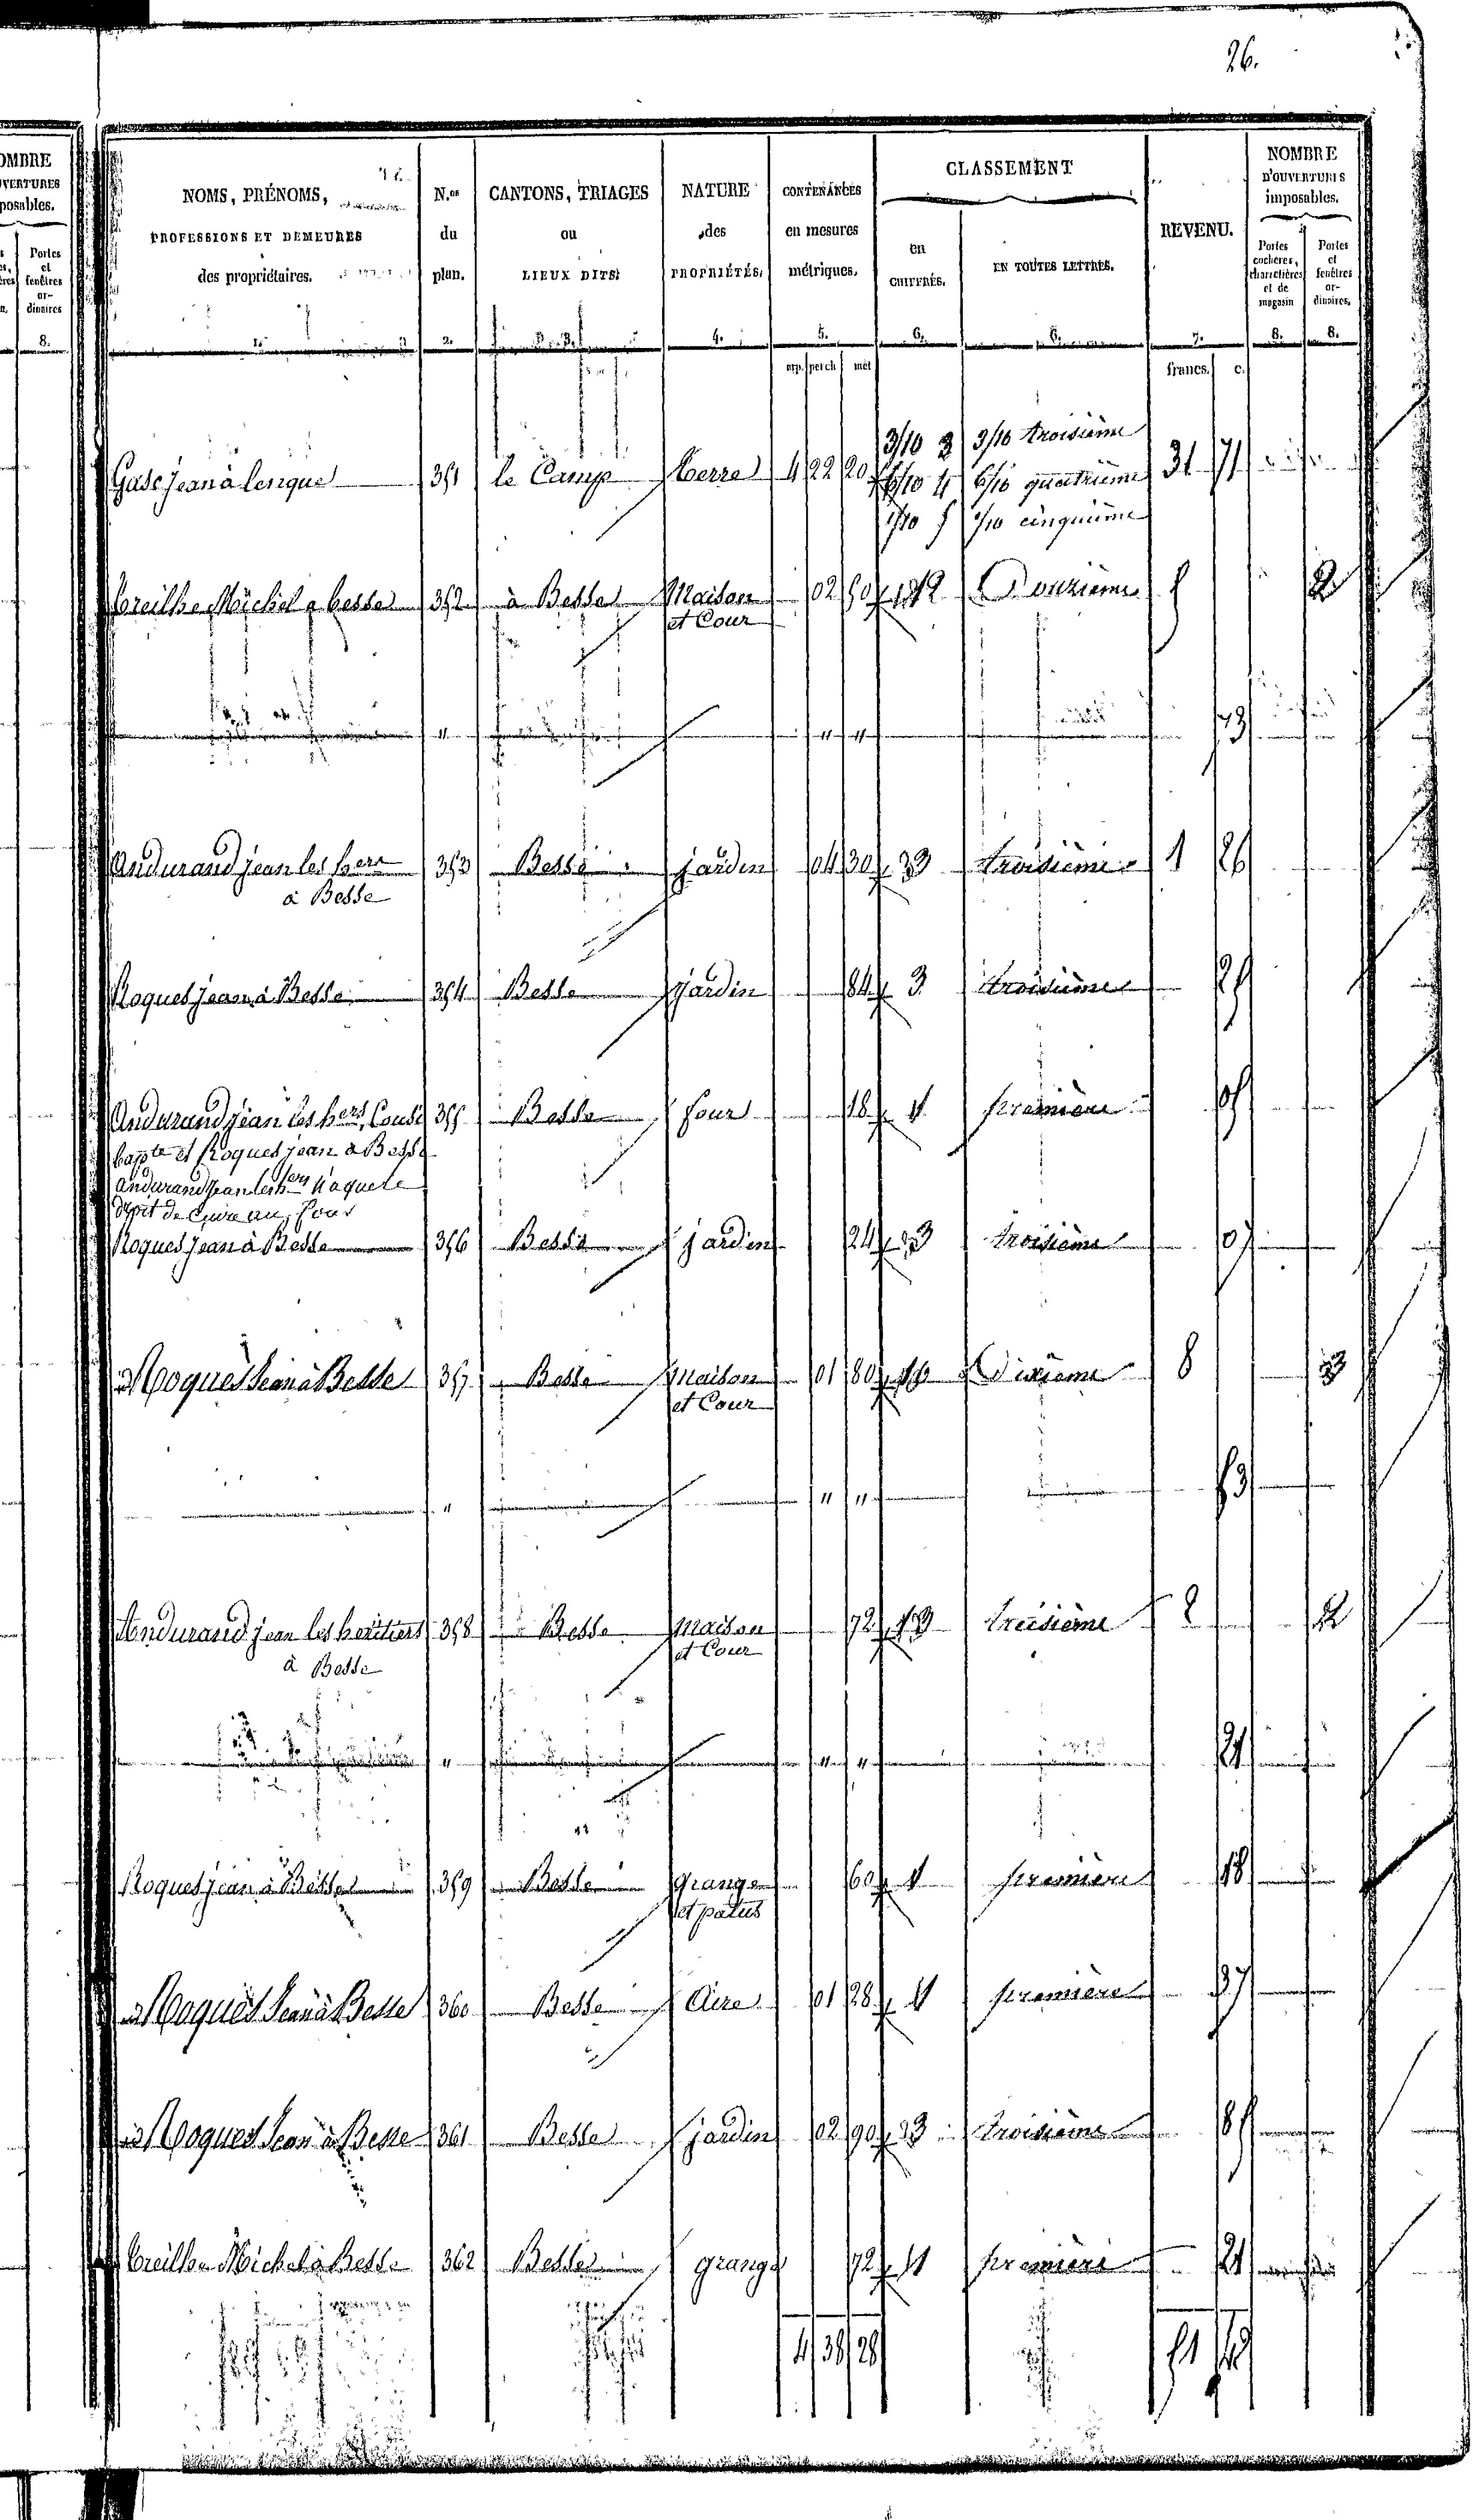 26.
OMBRE
VERTURES
posables.
Portes
et
fenêtres
or-
dinaires
8.
NOMS, PRÉNOMS,
PROFESSIONS ET DEMEURES
des propriétaires.
N.os
du
plan.
CANTONS, TRIAGES
ou
LIEUX DITS.
NATURE
des
PROPRIÉTÉS.
CONTENANCES
en mesures
métriques.
CLASSEMENT
en
CHIFFRES.
EN TOUTES LETTRES.
REVENU.
NOMBRE
D'OUVERTURES
imposables.
Portes
cochères,
charretières
et de
magasin
Portes
et
fenêtres
or-
dinaires.
1. 2. 3. 4. 5. 6. 6. 7. 8. 8.
arp. perch mèt francs. c.
3/10 3 3/10 troisième
jean à lenque 351 le Camp terre 4 22 20 6/10 4 6/10 quatrième 31 71
1/10 5 1/10 cinquième
Michel a besse 352 à Besse Maison 02 50 12 Douzième 5 2
et Cour
" " " 73
Andurand jean les hers 353 Besse jardin 04 30 3 troisième 1 26
à Besse
Roques jean à Besse 354 Besse jardin 84 3 troisième 25
Andurand jean les hers, 355 Besse four 18 1 première 05
bapte et Roques jean à Besse
andurand jean les hers n'a que le
droit de Cuire au four
Roques jean à Besse 356 Besse jardin 24 3 troisième 07
Roques Jean à Besse 357 Besse Maison 01 80 10 Dixième 8 3
et Cour
" " " 53
Andurand jean les heritiers 358 Besse Maison 72 13 treisième 2 2
à Besse et Cour
" " " 21
Roques jean à Besse 359 Besse grange 60 1 première 18
et patus
Roques Jean à Besse 360 Besse Aire 01 28 1 première 37
Roques Jean à Besse 361 Besse jardin 02 90 3 troisième 85
Michel à Besse 362 Besse grange 72 1 première 21
4 38 28 51